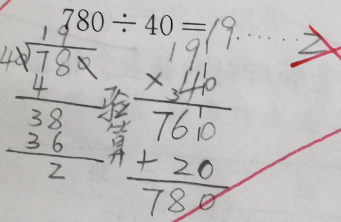 780÷40=19……2
19
40√780
4
38
36
2
验算
19
×40
760
+20
780